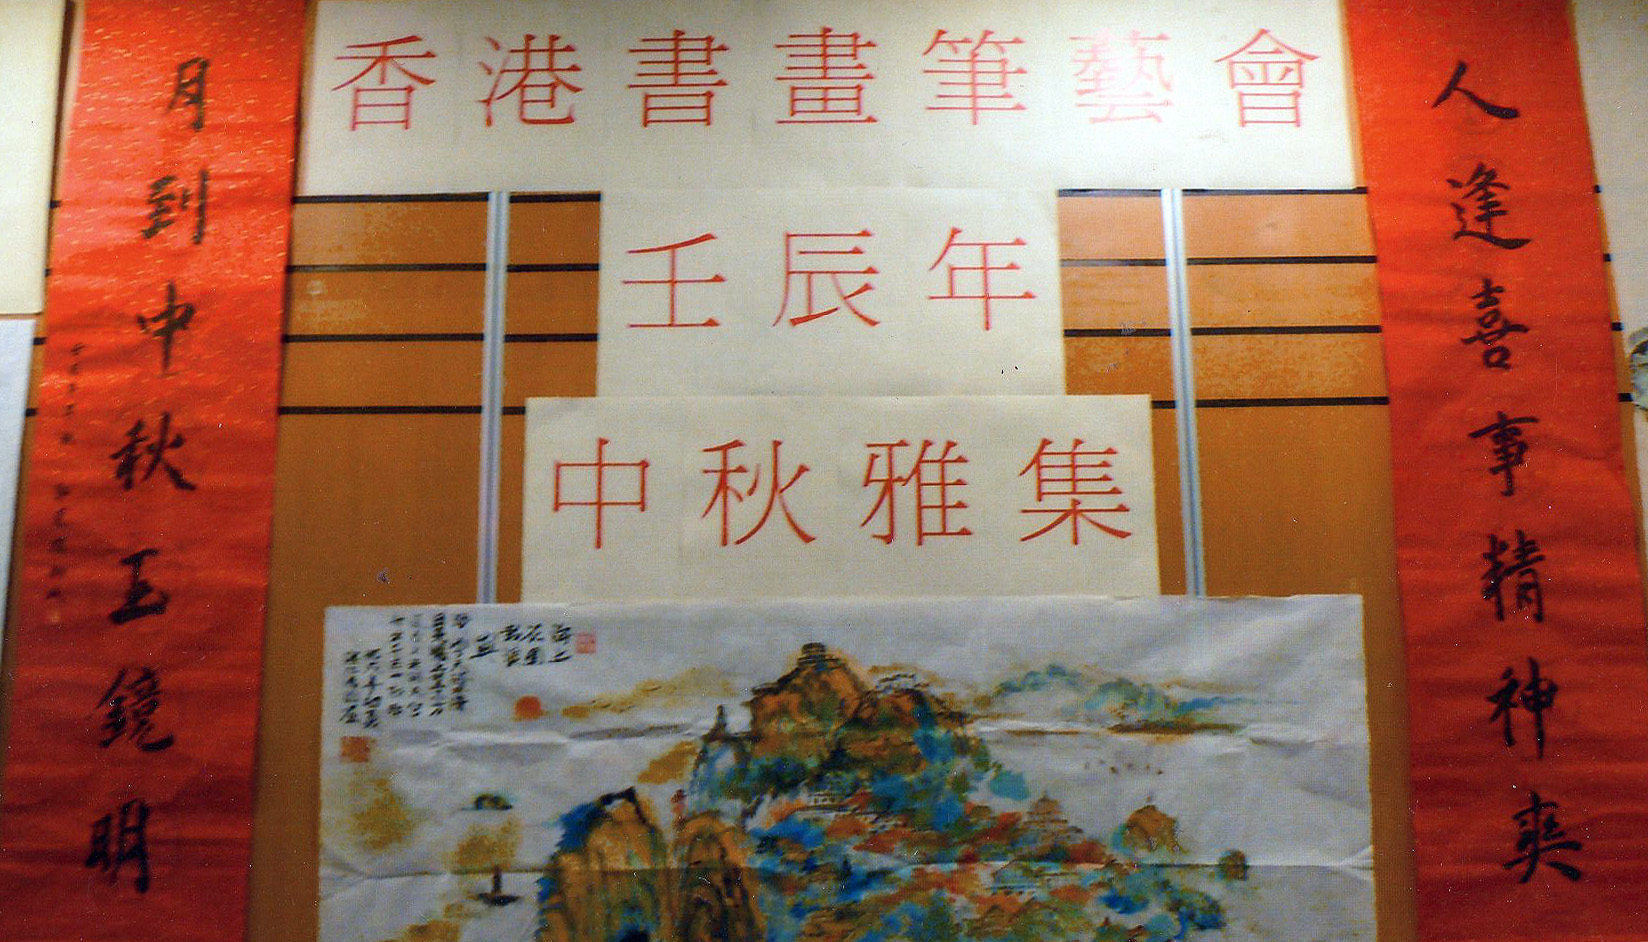 香港書畫筆藝會
壬辰年
中秋雅集
人逢喜事精神爽
月到中秋玉鏡明